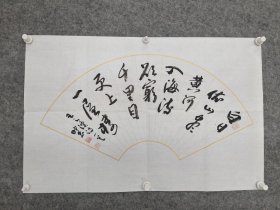 白日
依山尽
黄河
入海流
欲窮
千里目
更上
一層樓